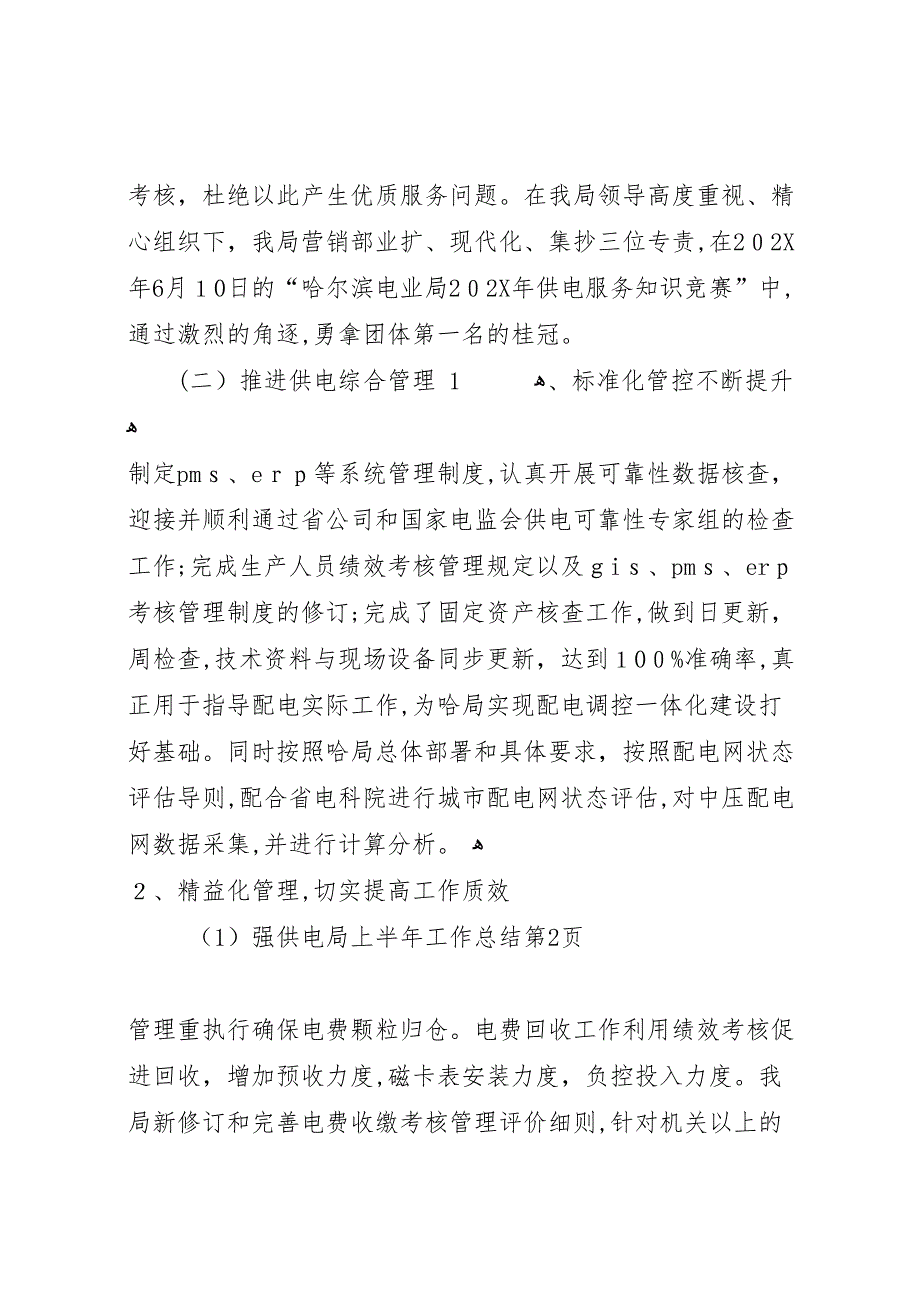 考核，杜绝以此产生优质服务问题。在我局领导高度重视、精
心组织下，我局营销部业扩、现代化、集抄三位专责,在202X
年6月10日的“哈尔滨电业局202X年供电服务知识竞赛”中,
通过激烈的角逐,勇拿团体第一名的桂冠。
(二）推进供电综合管理 1 ﻫ、标准化管控不断提升
ﻫ
制定pms、erp等系统管理制度,认真开展可靠性数据核查，
迎接并顺利通过省公司和国家电监会供电可靠性专家组的检查
工作;完成生产人员绩效考核管理规定以及gis、pms、erp
考核管理制度的修订;完成了固定资产核查工作,做到日更新，
周检查,技术资料与现场设备同步更新，达到100%准确率,真
正用于指导配电实际工作,为哈局实现配电调控一体化建设打
好基础。同时按照哈局总体部署和具体要求，按照配电网状态
评估导则,配合省电科院进行城市配电网状态评估,对中压配电
网数据采集,并进行计算分析。 ﻫ
２、精益化管理,切实提高工作质效
（1）强供电局上半年工作总结第2页
管理重执行确保电费颗粒归仓。电费回收工作利用绩效考核促
进回收，增加预收力度,磁卡表安装力度，负控投入力度。我
局新修订和完善电费收缴考核管理评价细则,针对机关以上的